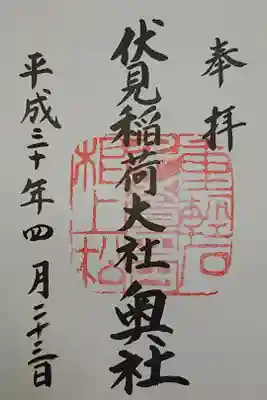 奉拝
伏見稲荷大社奥社
平成三十年四月二十三日